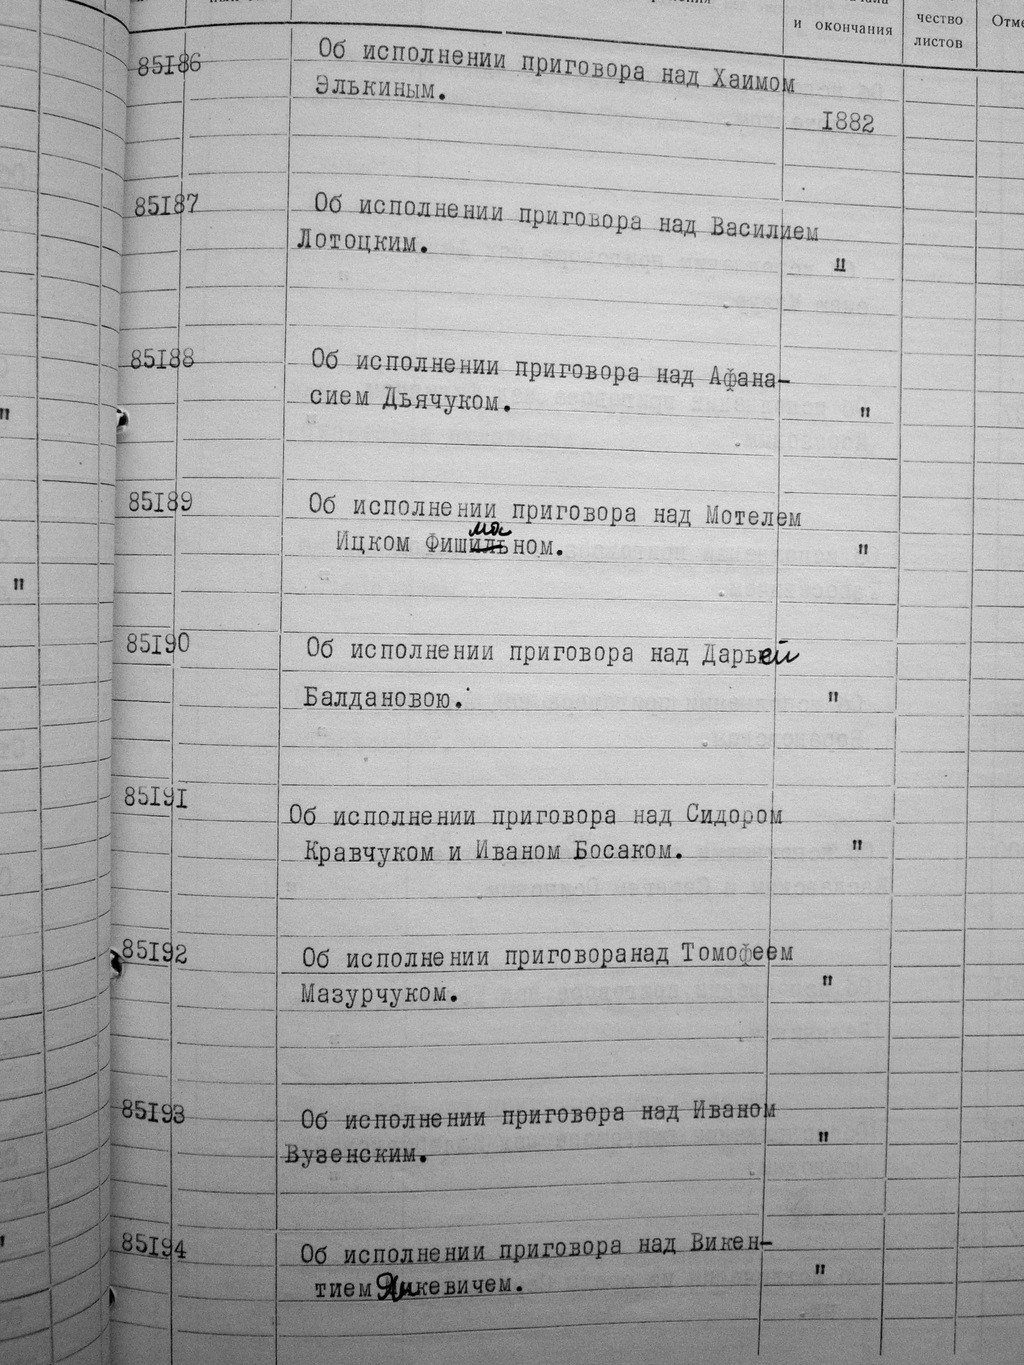 и окончания
чество
листов
85186
Об исполнении приговора над Хаимом
Элькиным.
1882
85187
Об исполнении приговора над Василием
Лотоцким.
"
85188
Об исполнении приговора над Афана-
сием Дьячуком.
"
85189
Об исполнении приговора над Мотелем
Ицком Фишманом.
"
85190
Об исполнении приговора над Дарьей
Балдановою.
"
85191
Об исполнении приговора над Сидором
Кравчуком и Иваном Босаком.
"
85192
Об исполнении приговоранад Томофеем
Мазурчуком.
"
85193
Об исполнении приговора над Иваном
Вузенским.
"
85194
Об исполнении приговора над Викен-
тием
"